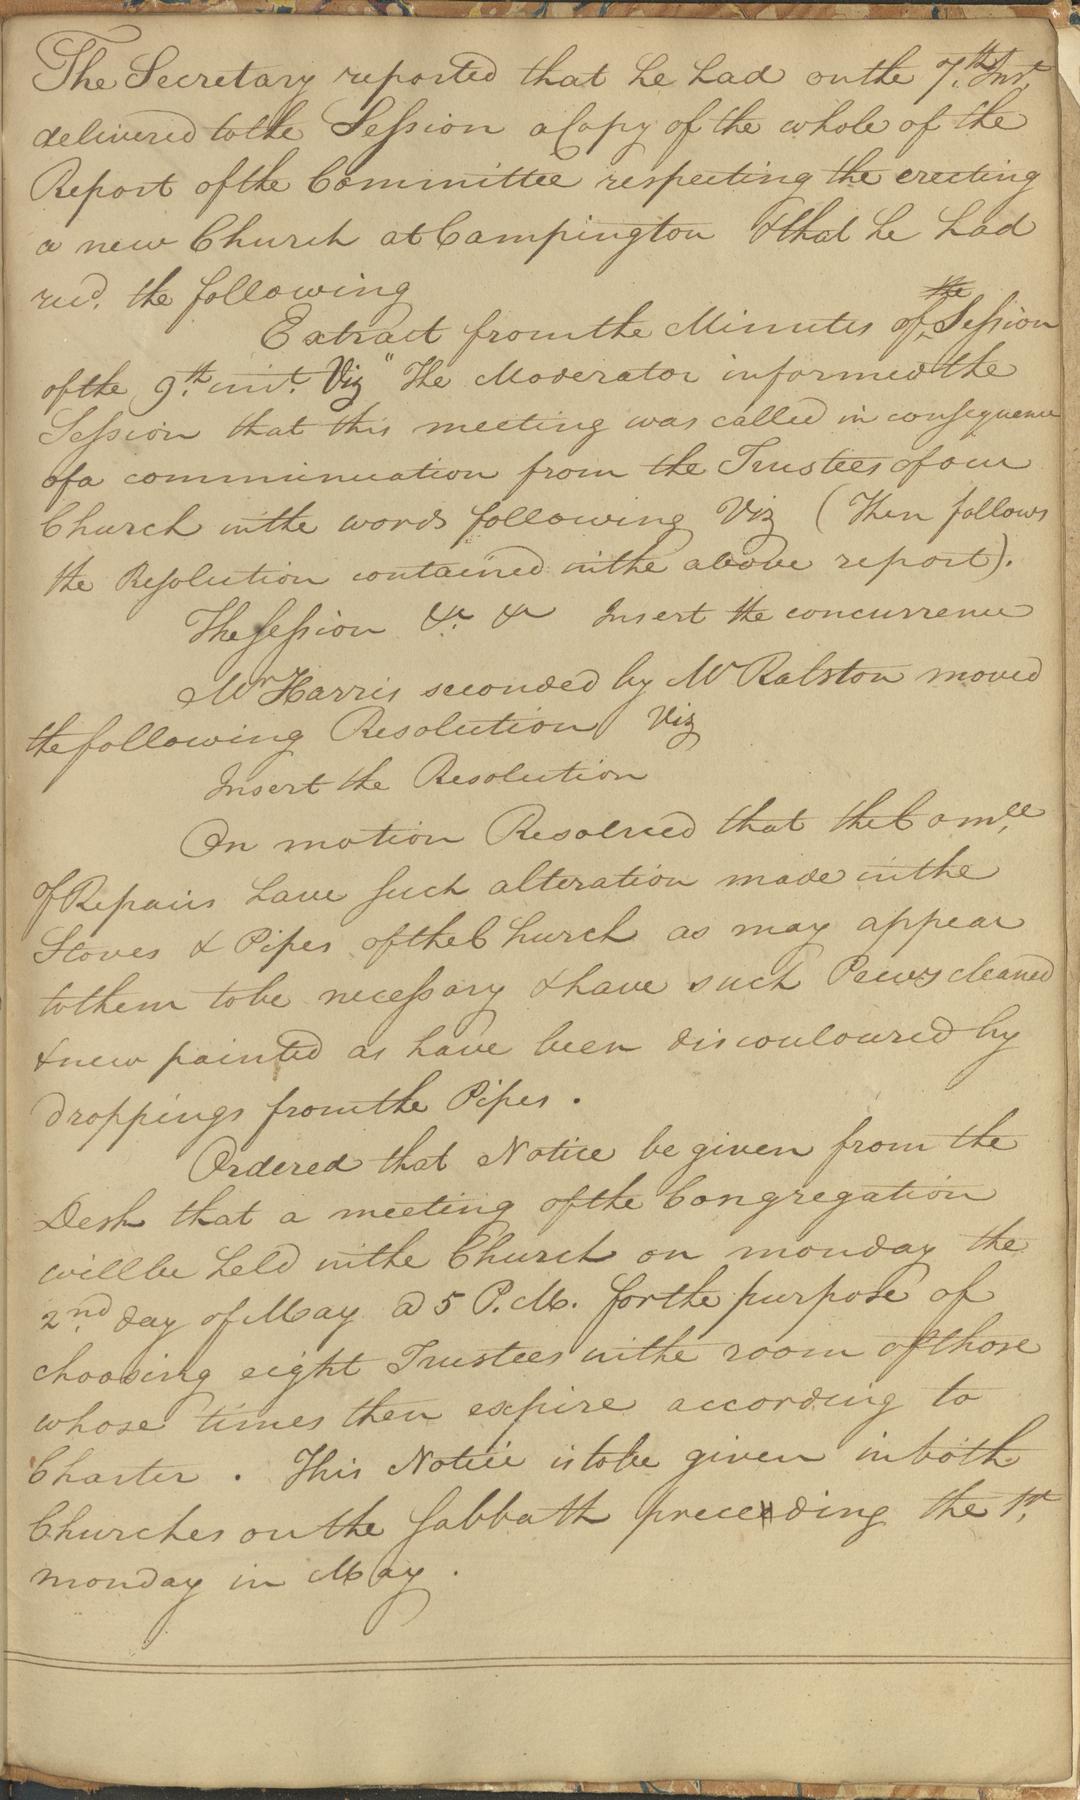 The Secretary reported that he had on the 7th. Inst.
delivered to the Session a Copy of the whole of the
Report of the Committee respecting the erecting
a new Church at Campington & that he had
recd. the following
Extract from the Minutes of the Session
of the 9th. inst. Viz " The Moderator informed the
Session that this meeting was called in consequence
of a communication from the Trustees of our
Church in the words following Viz (Then follows
the Resolution contained in the above report).
The Session &c &c Insert the concurrence
Mr Harris seconded by Mr Ralston moved
the following Resolution Viz
Insert the Resolution
On motion Resolved that the Comee.
of Repairs have such alteration made in the
Stoves & Pipes of the Church as may appear
to them to be necessary & have such Pews cleaned
& new painted as have been discouloured by
droppings from the Pipes .
Ordered that Notice be given from the
Desk that a meeting of the Congregation
will be held in the Church on monday the
2nd. day of May a 5 P.M. for the purpose of
choosing eight Trustees in the room of those
whose times then expire according to
Charter . This Notice is to be given in both
Churches on the Sabbath preceeding the 1st.
monday in May .